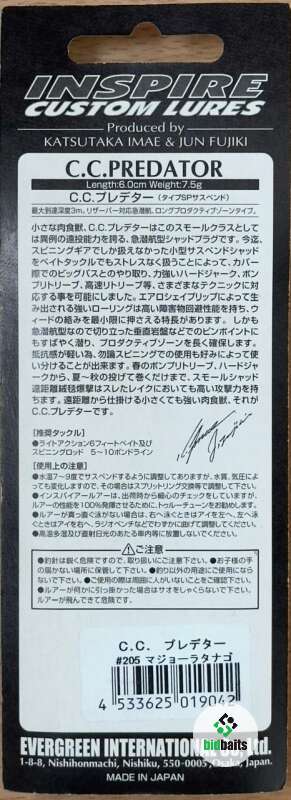 INSPIRE
CUSTOM LURES
Produced by
KATSUTAKA IMAE & JUN FUJIKI
C.C.PREDATOR
Length:6.0cm Weight:7.5g
C.C.プレデター(タイプSPサスペンド)
最大到達深度3m、リザーバー対応急潜航、ロングプロダクティブゾーンタイプ。
小さな肉食獣、C.C.プレデターはこのスモールクラスとして
は異例の遠投能力を誇る、急潜航型シャッドプラグです。今迄、
スピニングギアでしか扱えなかった小型サスペンドシャッド
をベイトタックルでもストレスなく扱うことによって、カバー
際でのビッグバスとのやり取り、力強いハードジャーク、ボン
プリトリーブ、高速リトリーブ等、さまざまなテクニックに対
応する事を可能にしました。エアロシェイプリップによって生
み出される強いローリングは高い障害物回避性能を持ち、ウ
ィードの絡みを最小限に押さえる特長があります。しかも
急潜航型なので切り立った垂直岩盤などでのピンポイントに
もすばやく潜り、プロダクティブゾーンを長く確保します。
抵抗感が軽い為、勿論スピニングでの使用も好みによって使
い分けることが出来ます。春のポンプリトリーブ、ハードジャ
ークから、夏〜秋の投げて巻くだけまで、スモールシャッド
遠距離絨毯爆撃はスレたレイクにおいても高い攻撃力を持
ちます。遠距離から仕掛ける小さくても強い肉食獣、それが
C.C.プレデターです。
【推奨タックル】
●ライトアクション6フィートベイト及び
スピニングロッド 5〜10ポンドライン
【使用上の注意】
●水温7〜9度でサスペンドするように調整してありますが、水質、気圧によ
っても変化しますので、その場合はスプリットリング交換等で調整して下さい。
●インスパイアールアーは、出荷時から細心のチェックをしていますが、
ルアーの性能を100%発揮させるために、トゥルーチューンをお勧めします。
●ルアーが真っ直ぐ泳がない場合は、右へ泳ぐときはアイを左へ、左へ泳ぐ
ときはアイを右へ、ラジオペンチなどでわずかに曲げて調整してください。
●高温多湿及び直射日光のあたる車内等に放置しないでください。
⚠ご注意
●釣針は鋭く危険ですので、取り扱いにご注意下さい。●お子様の手
の届かない場所に保管して下さい。●釣り以外の用途にご使用になら
ないで下さい。●ご使用の際は周囲に人がいないことをご確認下さい。
●ルアーが何かに引っ掛かった場合はサオをしゃくらないで下さい。
ルアーが飛んできて危険です。
C.C. プレデター
#205 マジョーラタナゴ
4 533625 019042
bidbaits
EVERGREEN INTERNATIONAL CO., Ltd.
1-8-8, Nishihonmachi, Nishiku, 550-0005, Osaka, Japan.
MADE IN JAPAN